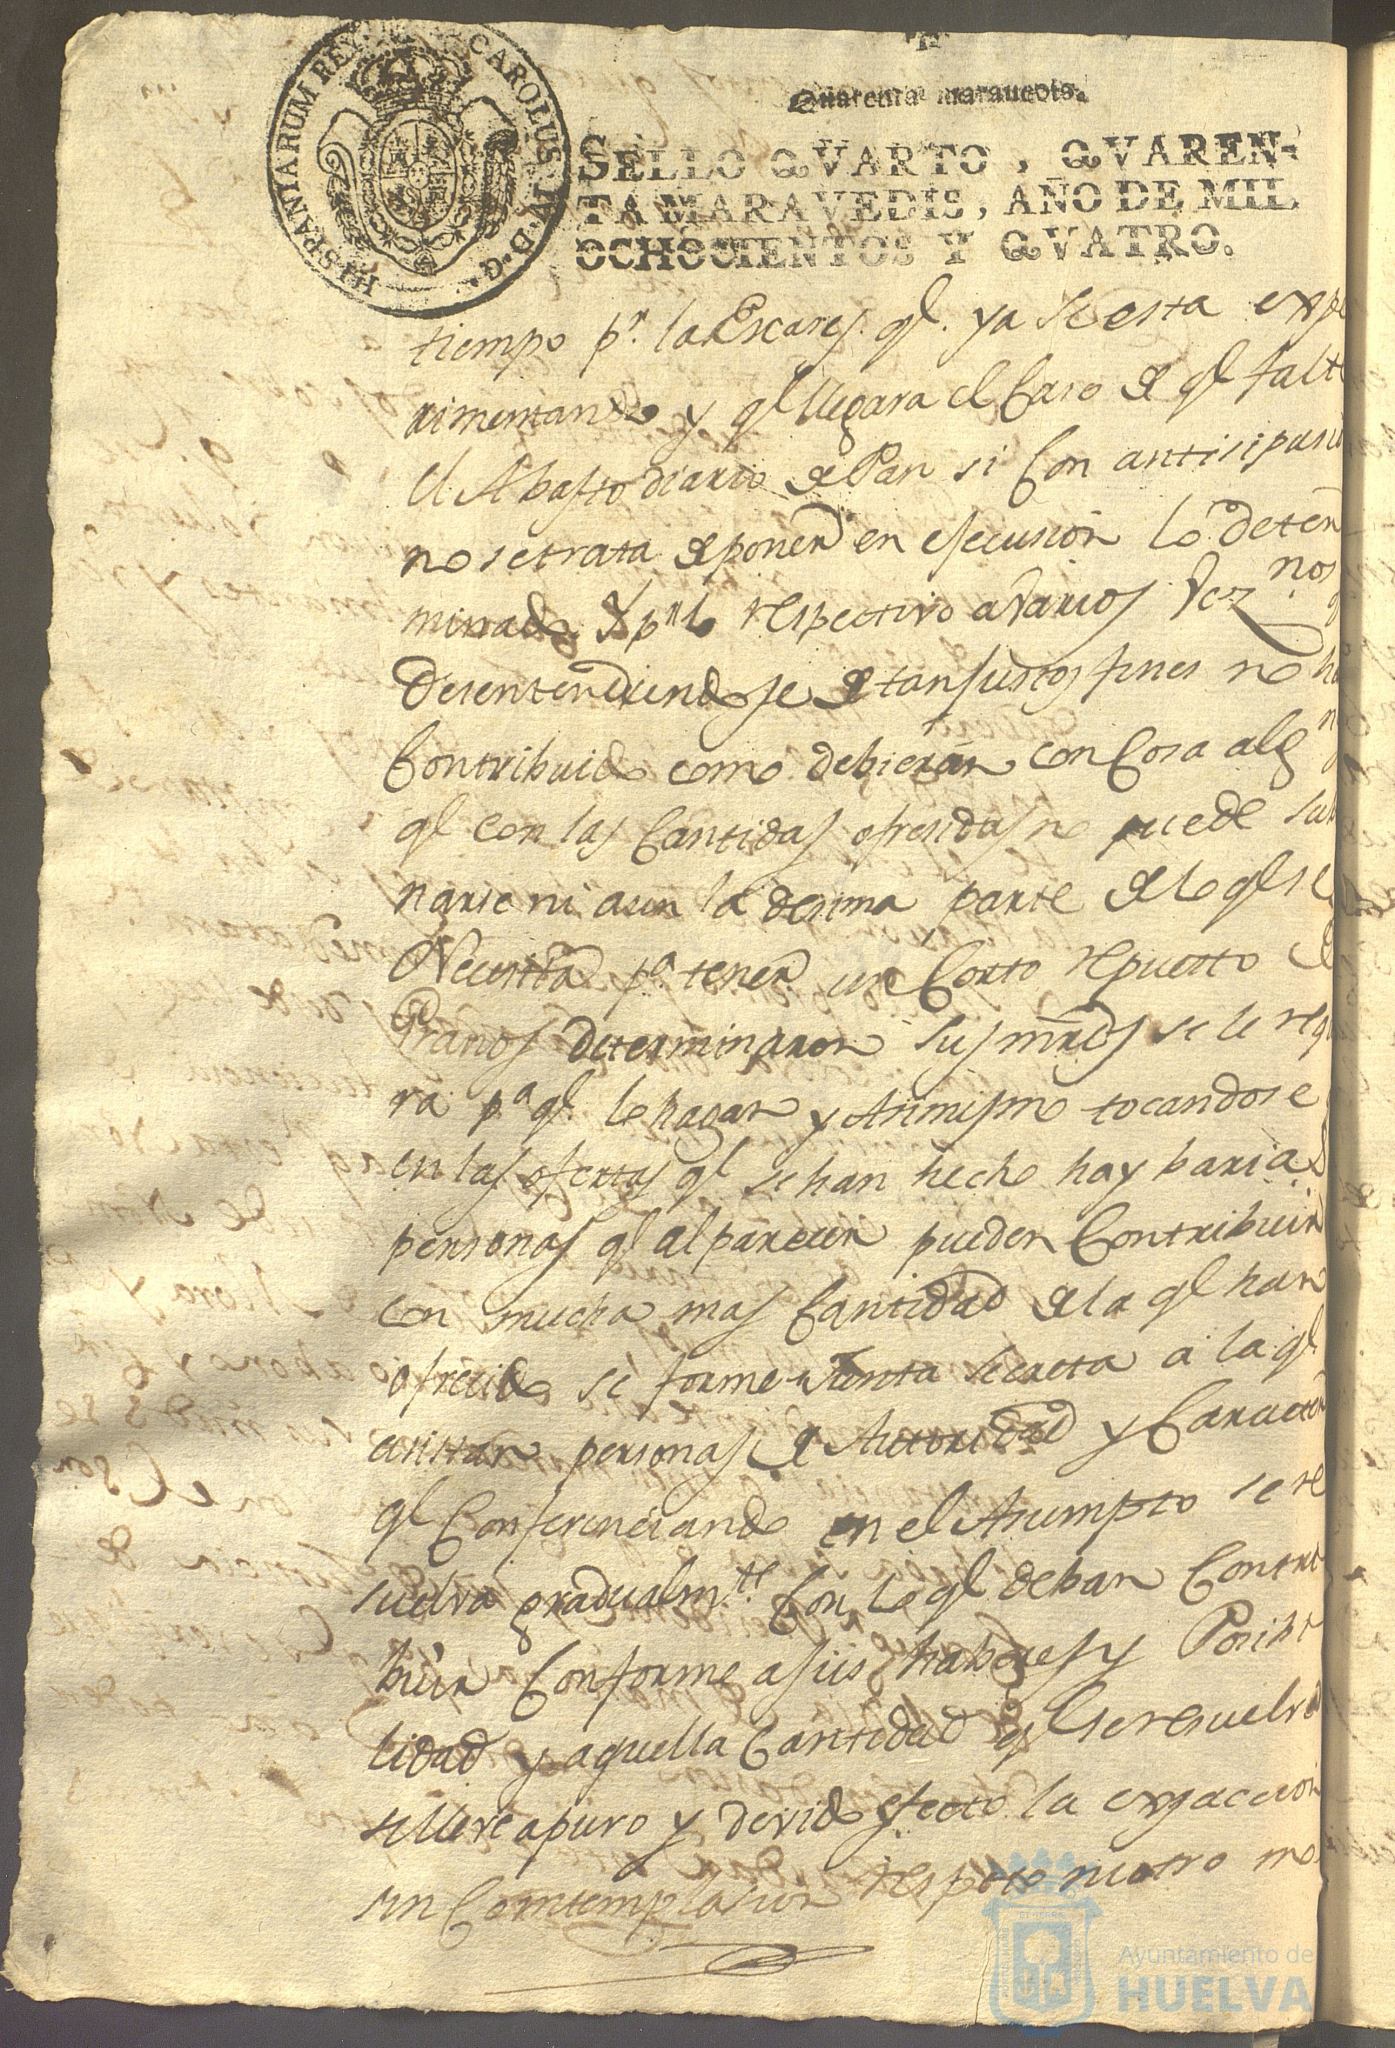 HISPANIARUM REX. CAROLUS IV D. G.
Quarenta maravedis.
SELLO QVARTO, QVAREN-
TA MARAVEDIS, AÑO DE MIL
OCHOCIENTOS Y QVATRO.
tiempo pr. la Escares. ql. ya se esta expe
rimentando y ql llegara el Caso de ql falte
el Abasto diario de Pan si Con antisipasio
no se trata de poner en esecusion lo deter
minado Y pr. lo respectivo a Varios Veznos q
Desentendiendose de tan justos fines no ha
Contribuido como debieran con Cosa algn
ql con las Cantidas ofresidas no puede
narse ni aun la desima parte de lo ql se
Necesita pa. tener un Corto repuesto de
Granos determinaron sus mrds se le requ
ra pa ql. lo hagan y Asimismo tocandose
en las ofertas ql se han hecho hay barias
personas ql al pareser pueden Contribuir
con mucha mas Cantidad de la ql han
ofrecido se forme Junta secreta a la ql
asistan personas de Autoridad y Caracter
ql Conferenciando en el Asumpto se re
suelva gradualmte. Con lo ql deban Contri
buir Conforme a sus haberes y Posibi
lidad y aquella Cantidad ql se resuelva
se lleve a puro y devido efecto la exsaccion
sin Comtemplasion respeto ni otro mo
Ayuntamiento de
HUELVA